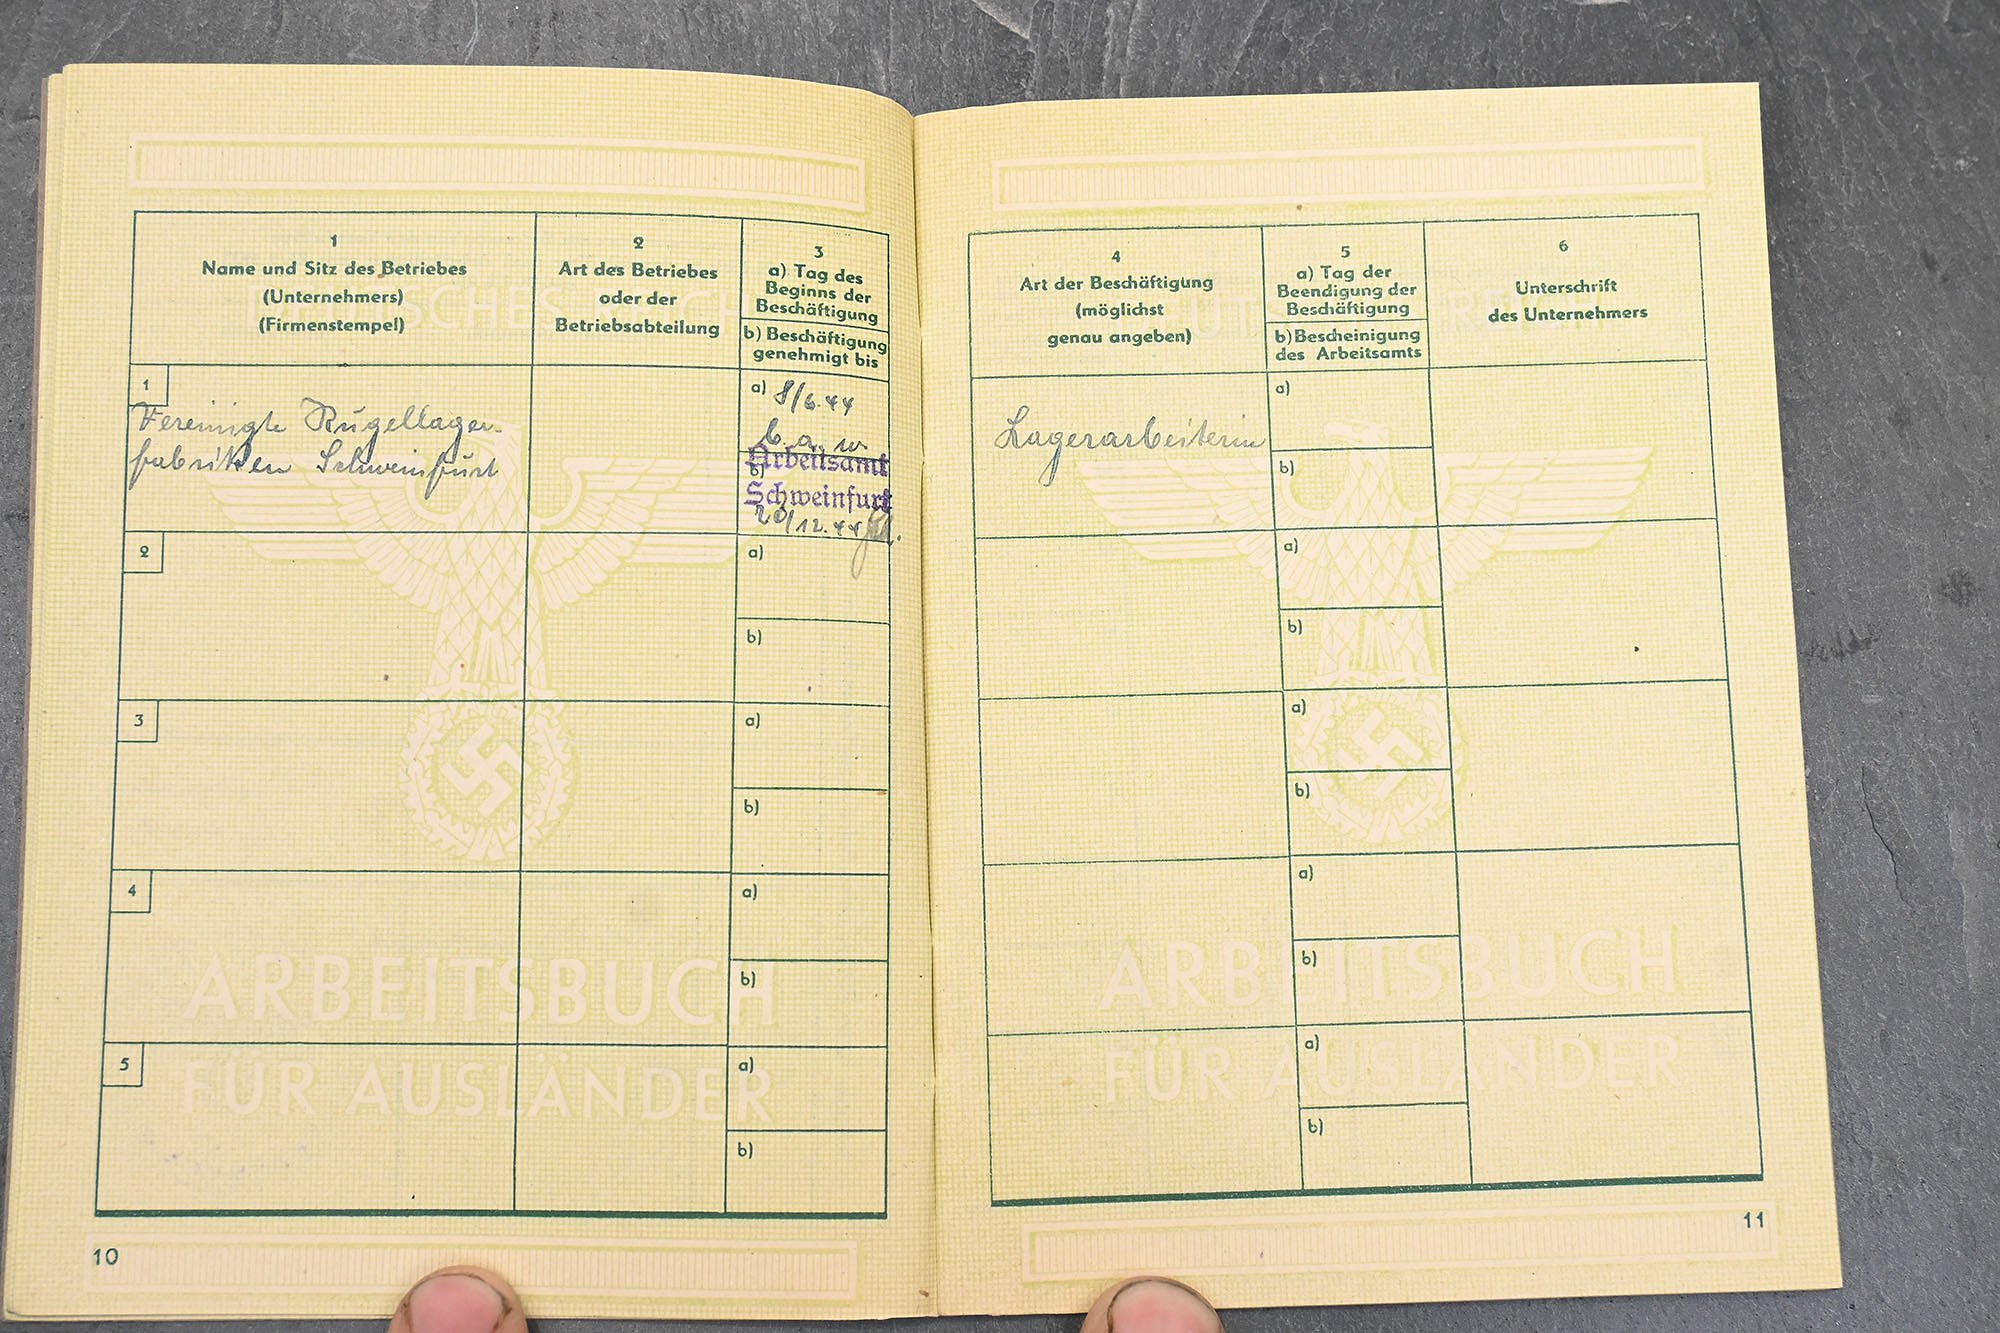 1
Name und Sitz des Betriebes
(Unternehmers)
(Firmenstempel)
2
Art des Betriebes
oder der
Betriebsabteilung
3
a) Tag des
Beginns der
Beschäftigung
b) Beschäftigung
genehmigt bis
1
Vereinigte Kugellager-
fabriken Schweinfurt
a) 8/6.44
b. a. w.
Arbeitsamt
b)
Schweinfurt
20/12.44
2
a)
b)
3
a)
b)
4
a)
b)
5
a)
b)
DEUTSCHES REICH
ARBEITSBUCH
FÜR AUSLÄNDER
10
4
Art der Beschäftigung
(möglichst
genau angeben)
5
a) Tag der
Beendigung der
Beschäftigung
b) Bescheinigung
des Arbeitsamts
6
Unterschrift
des Unternehmers
Lagerarbeiterin
a)
b)
a)
b)
a)
b)
a)
b)
a)
b)
DEUTSCHES REICH
ARBEITSBUCH
FÜR AUSLÄNDER
11